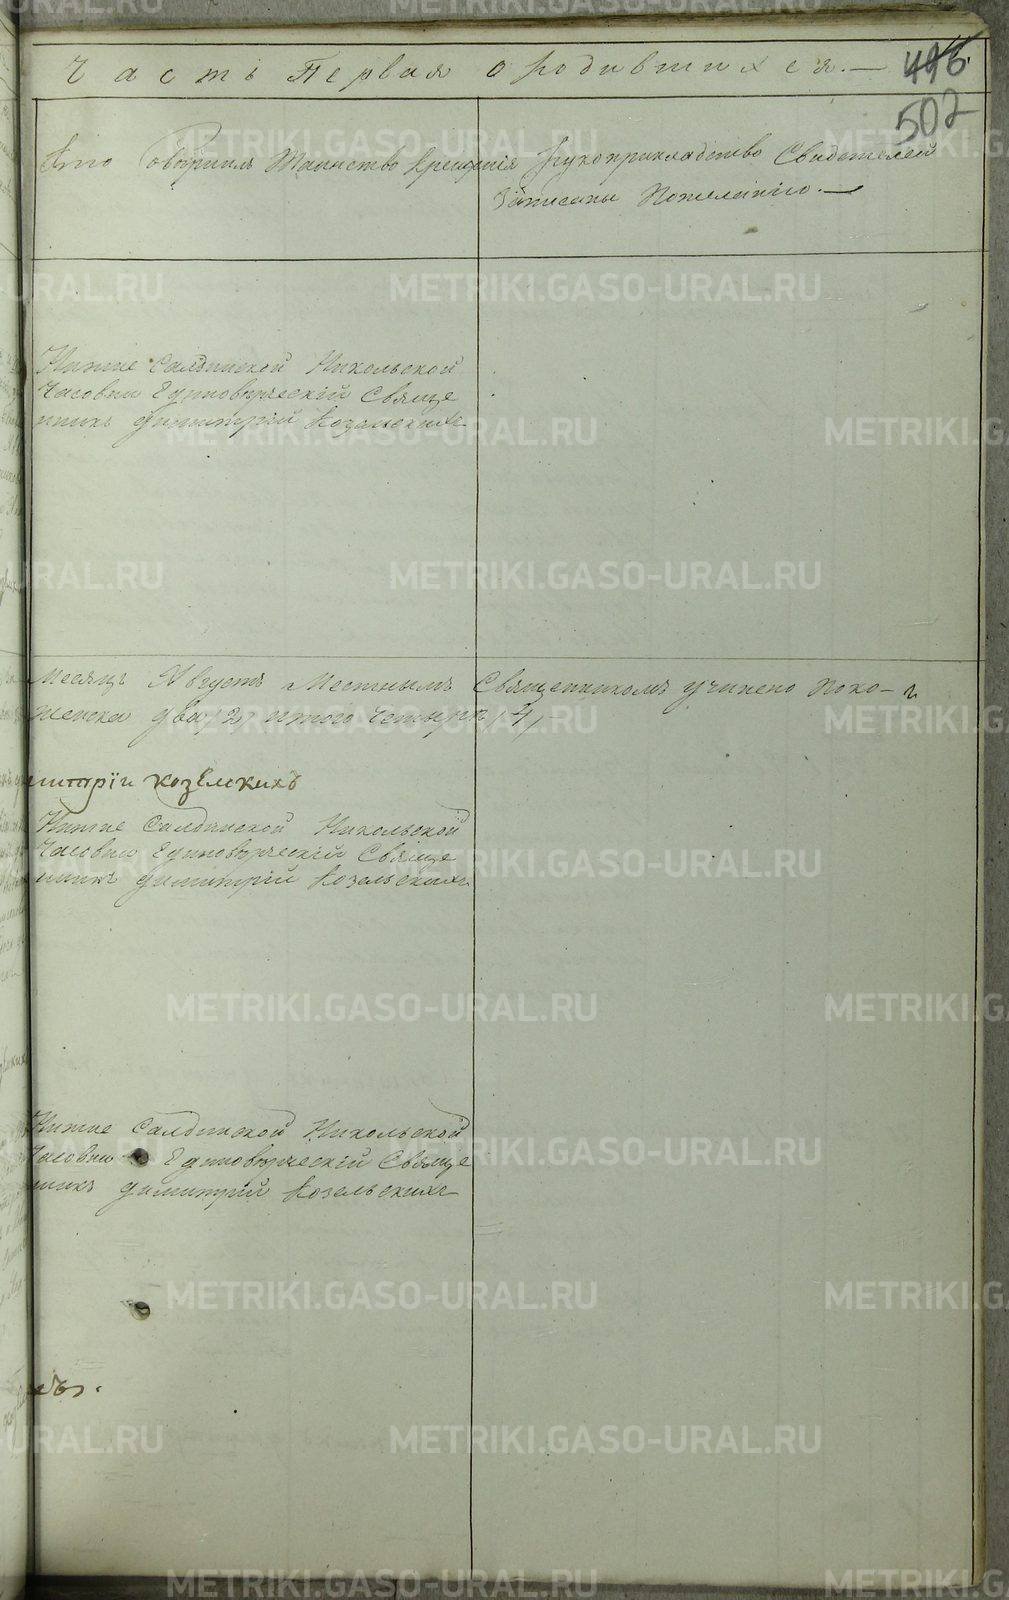 Часть Первая о родившихся. — 446.
502
Кто Совершилъ Таинство Крещенія
Рукоприкладство Свидетелей
Записаны Пожеланію. —
Нижне Салдинской Никольской
Часовни Единоверческій Свяще
нникъ Димитрій Козельскихъ
Месяцъ Августъ Местнымъ Священникомъ учинено
женска два /2/ итого четыри /4/
митрїи козелскихъ
Нижне Салдинской Никольской
Часовни Единоверческій Свяще
нникъ Димитрій Козельскихъ
Нижне Салдинской Никольской
Часовни Единоверческій Свяще
нникъ Димитрій Козельскихъ
METRIKI.GASO-URAL.RU